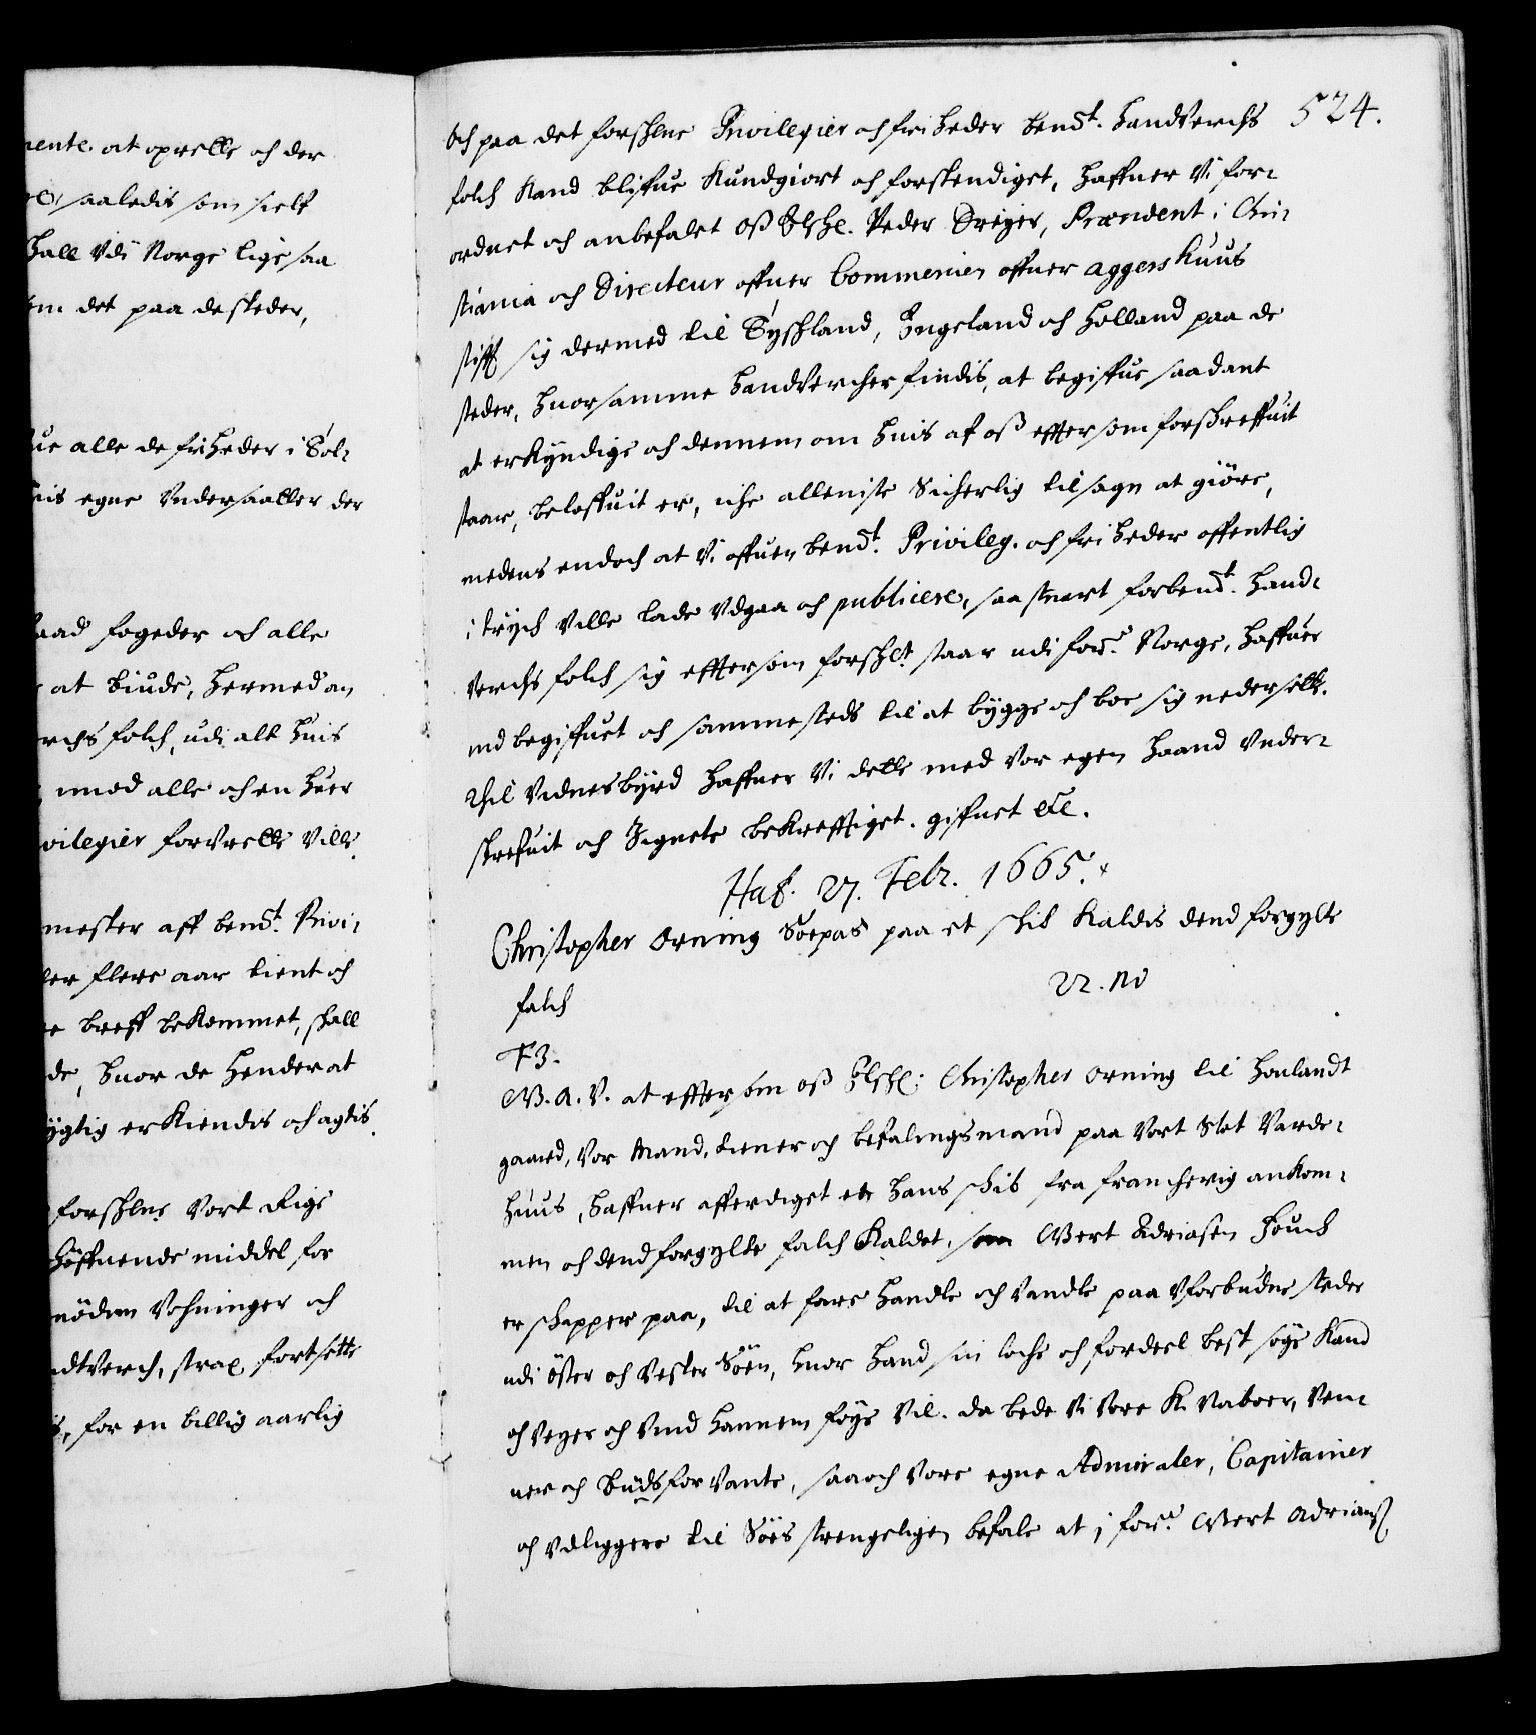 ente. at oprette och der
saaledis som self
Hall vdi Norge lige saa
om det paa de steder,
ue alle de friheder i Tol¬
is egne Vndersaatter der
aad fogeder och alle
at biude, hermed an
rchs folch, udi alt huis
imod alle och en huer
vilegier forvrette ville.
mester aff bendt. Privi¬
ler flere aar tient och
breff bekommet, skall
de, huor de hender at
ygtig erkiendis och agtis.
forskne Vort Rige
höffuende middel for
nöden Vohninger och
dtverch, strax fortsette
for en billig aarlig
524.
Och paa det forskne Privilegier och friheder bendt. handverchs
folch kand bliffue kundgiort och forstendiget, haffuer Vi for¬
ordnet och anbefalet oß Elskl. Peder Dreyer, Præsident i Chri¬
stiania och Directeur offuer Commercien offuer aggershuus
stift sig dermed til Tyskland, Engeland och Holland paa de
steder, huor samme handvercher findis, at begiffue saadant
at erkyndige och dennem om huis af oß efftersom forskreffuit
staar, beloffuit er, icke alleniste Sicherlig tilsagn at giöre,
medens endoch at Vi offuen bendt. Privileg. och friheder offentlig
i trych ville lade vdgaa och publicere, saa snart forbendt. hand¬
verchs folch sig efftersom forskt. staar udi forne Norge, haffuer
ind begiffuet och sammesteds til at bygge och boe sig nedersatt.
Thil Vidnesbyrd haffuer Vi dette med Vor egen haand Vnder¬
skrefuit och Zignete bekrefftiget. giffuet etc.
Haf. 27. Febr. 1665.
Christopher Orning Söepas paa et skib kaldis dend forgylte
falch
22. no
F3.
W. A. V. at effterson oß Elskl: Christopher Orning til Houlandt
gaard, Vor Mand, tiener och befalingsmand paa Vort Slot Varde¬
huus, haffuer afferdiget et hans skib fra francherig ankom¬
men och dend forgylte falch kaldet, som Evert Adriasen Houch
er skipper paa, til at fare handle och vandle paa Vforbudne steder
udi öster och Vester Söen, huor hand sin loche och fordeel best söge kand
och veyer och Vind hannem föye vil. da bede Vi Vore K. Naboer, Ven¬
ner och budsforvante, saa och Vore egne Admiraler, Capitainer
och vdliggere til Söes strengeligen befale at i forne Evert Adrianß